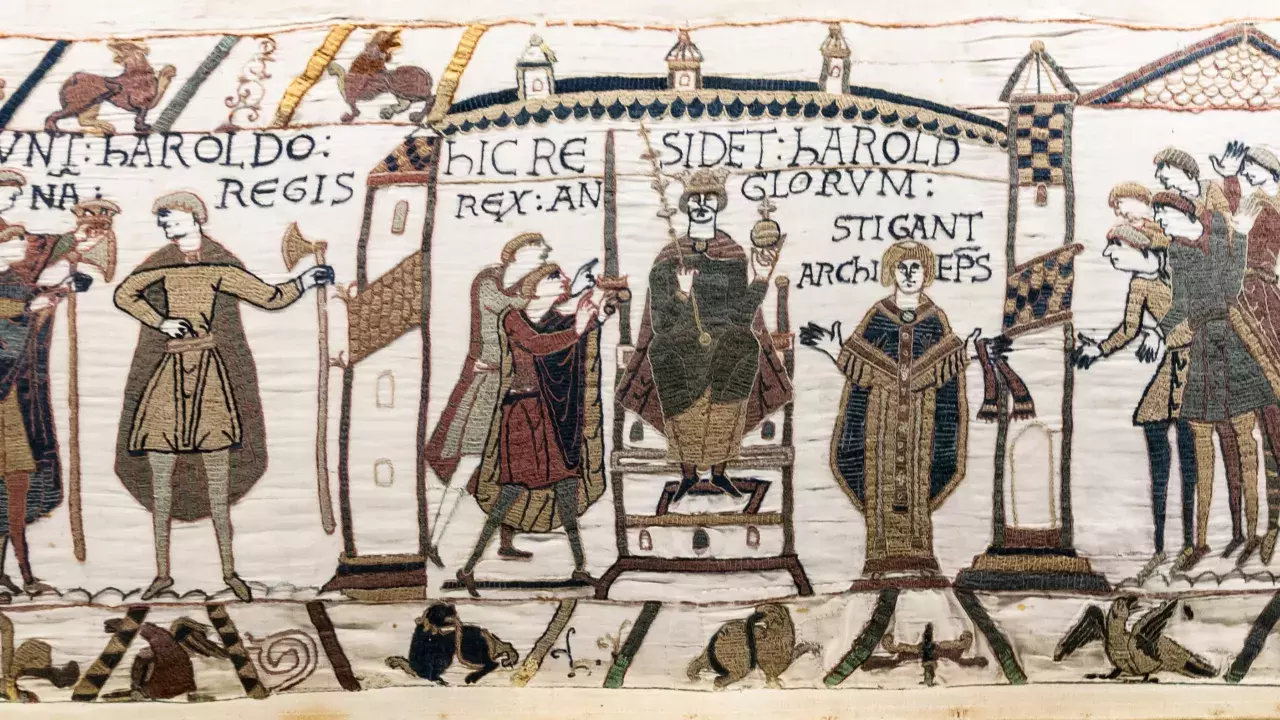 VNT : hAROLDO :
NA : REGIS
hIC RESIDET : hAROLD
REX : ANGLORVM :
STIGANT
ARChIEP̄S